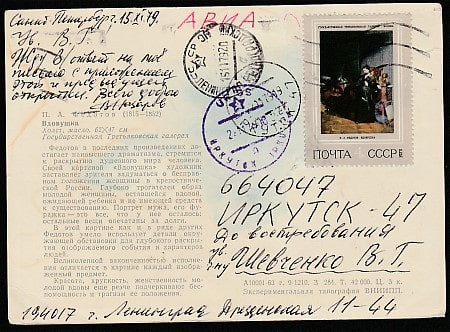 Санкт Петербург. 15.XI.79.
АВИА
Ув. В. Г.
Жду ответ на моё
письмо с приложением
этой и предыдущей
открытки. Всего доброго
П. А. Федотов (1815—1852)
Вдовушка
Холст, масло. 62×47 см
Государственная Третьяковская галерея
Федотов в последних произведениях достигает
изменившего драматизма, стремится
к раскрытию душевного мира человека.
Своей картиной «Вдовушка» художник
заставляет зрителя задуматься о бесправном
положении женщины в крепостнической
России. Глубоко трогателен образ
молодой женщины, оставшейся вдовой,
ожидающей ребенка и не имеющей средств
к существованию. Портрет мужа, его фуражка
— это все, что у нее осталось;
остальные вещи опечатаны за долги.
В этой картине как и в ряде других
Федотов умело использует детали окружающей
обстановки для глубокого раскрытия
изображаемого события и характеров
людей.
Великолепной законченностью исполнения
отличается в картине каждый изображенный
предмет.
Красота, хрупкость, женственность молодой
вдовы еще резче подчеркивают беспомощность
и трагизм ее положения.
ПОЧТА СССР
ИРКУТСК
664047
ИРКУТСК-47
До востребования
Шевченко В. Г.
А10001-63 г. 2-1210. З 284. Т. 42 000. Ц. 3 к.
Экспериментальная типография ВНИИПП.
194017 г. Ленинград Дрезденская 11-44